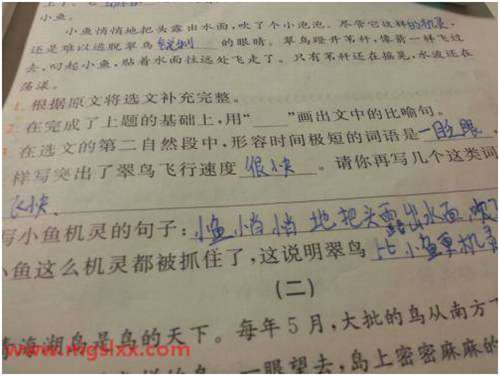 小鱼。
小鱼悄悄地把头露出水面,吹了个小泡泡。尽管它这样的机灵,
还是难以逃脱翠鸟锐利的眼睛。翠鸟蹬开苇秆,像箭一样飞过
去,叼起小鱼,贴着水面往远处飞走了。只有苇秆还在摇晃,水波还在
荡漾。
1. 根据原文将选文补充完整。
2. 在完成了上题的基础上,用“____”画出文中的比喻句。
3 在选文的第二自然段中,形容时间极短的词语是一眨眼
样写突出了翠鸟飞行速度很快。请你再写几个这类词
飞快
写小鱼机灵的句子:小鱼悄悄地把头露出水面 吹了
小鱼这么机灵都被抓住了,这说明翠鸟比小鱼更机灵
(二)
青海湖鸟岛是鸟的天下。每年5月,大批的鸟从南方
一眼望去,岛上密密麻麻的
www.mgslxx.com